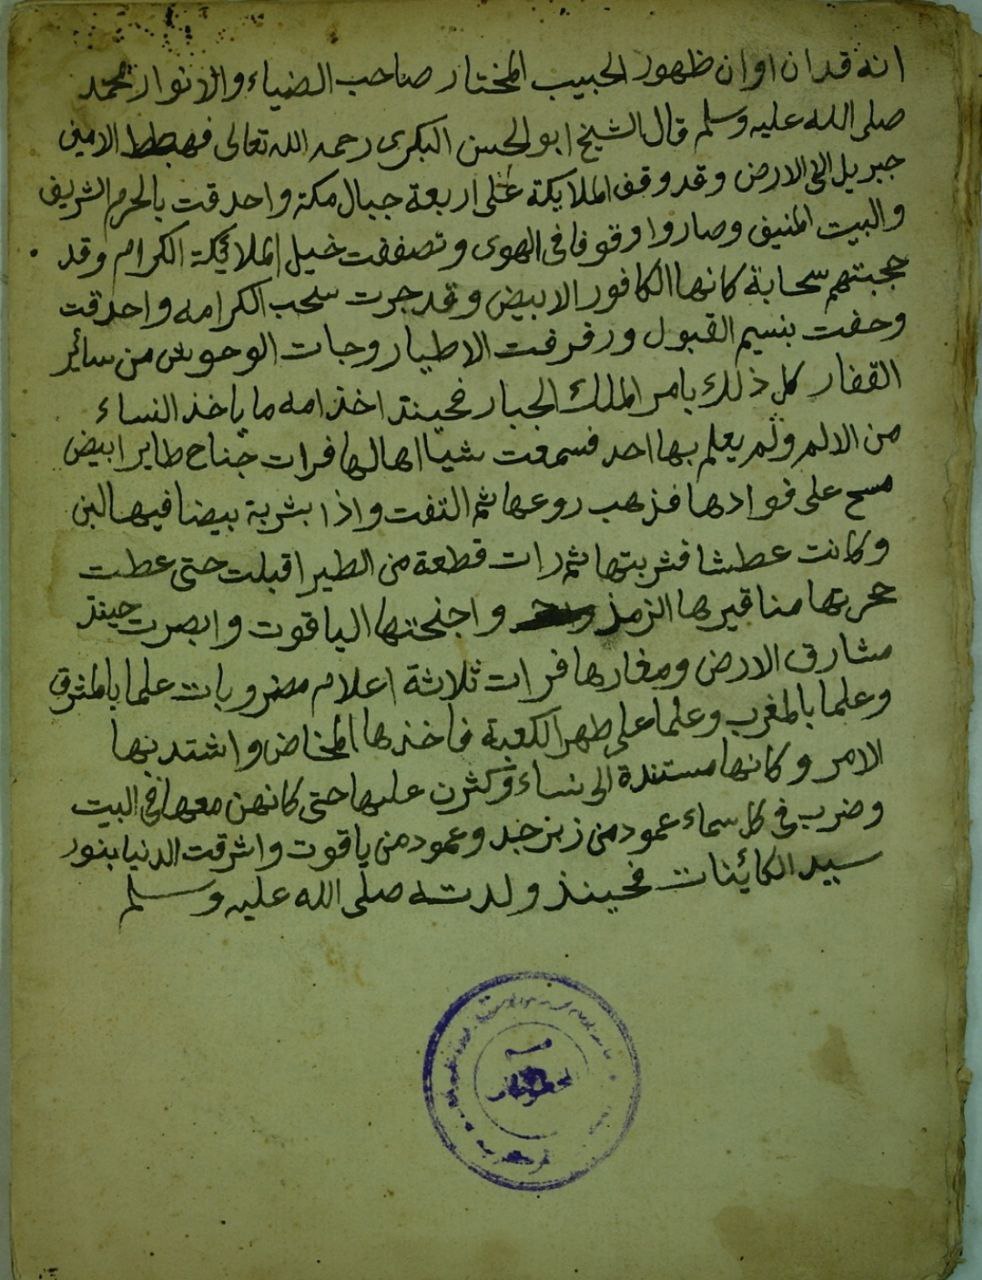 انه قد ان اوان ظهور الحبيب المختار صاحب الضياء والانوار محمد
صلى الله عليه وسلم قال الشيخ ابو الحسن البكرى رحمه الله تعالى فهبط الامين
جبريل الى الارض وقد وقف الملايكة على اربعة جبال مكة واحدقت بالحرم الشريف
والبيت المنيف وصاروا وقوفا فى الهوى وتصففت خيل الملائكة الكرام وقد
حجبتهم سحابة كانها الكافور الابيض وقد جرت سحب الكرامه واحدقت
وحفت بنسيم القبول ورفرفت الاطيار وجات الوحوش من سائر
القفار كل ذلك بامر الملك الجبار فحينئذ اخذ امه ما ياخذ النساء
من الالم ولم يعلم بها احد فسمعت شيا اهالها فرات جناح طاير ابيض
مسح على فوادها فذهب روعها ثم التفت واذا بشربة بيضا فيها لبن
وكانت عطشا فشربتها ثم رات قطعة من الطير اقبلت حتى غطت
حجرتها مناقيرها الزمذ واجنحتها الياقوت وابصرت حينئذ
مشارق الارض ومغاربها فرات ثلاثة اعلام مضروبات علما بالمشرق
وعلما بالمغرب وعلما على ظهر الكعبة فاخذها المخاض واشتد بها
الامر وكانها مستندة الى نساء وكثرن عليها حتى كانهن معها فى البيت
وضرب فى كل سماء عمود من زبرجد وعمود من ياقوت واشرقت الدنيا بنور
سيد الكائينات فحينئذ ولدته صلى الله عليه وسلم